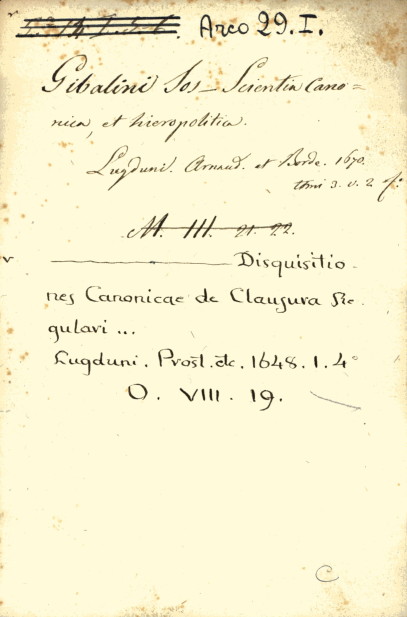 Arco 29. I.
Gibalini Jos - Scientia Cano=
nica, et hieropolitica.
Lugduni. Arnaud. et Borde. 1670.
tomi 3. v. 2 f:
M. III. 21. 22.
v ———— Disquisitio-
nes Canonicae de Clausura Re-
gulari ...
Lugduni. Prost. etc. 1648. 1. 4°
O. VIII. 19.
C